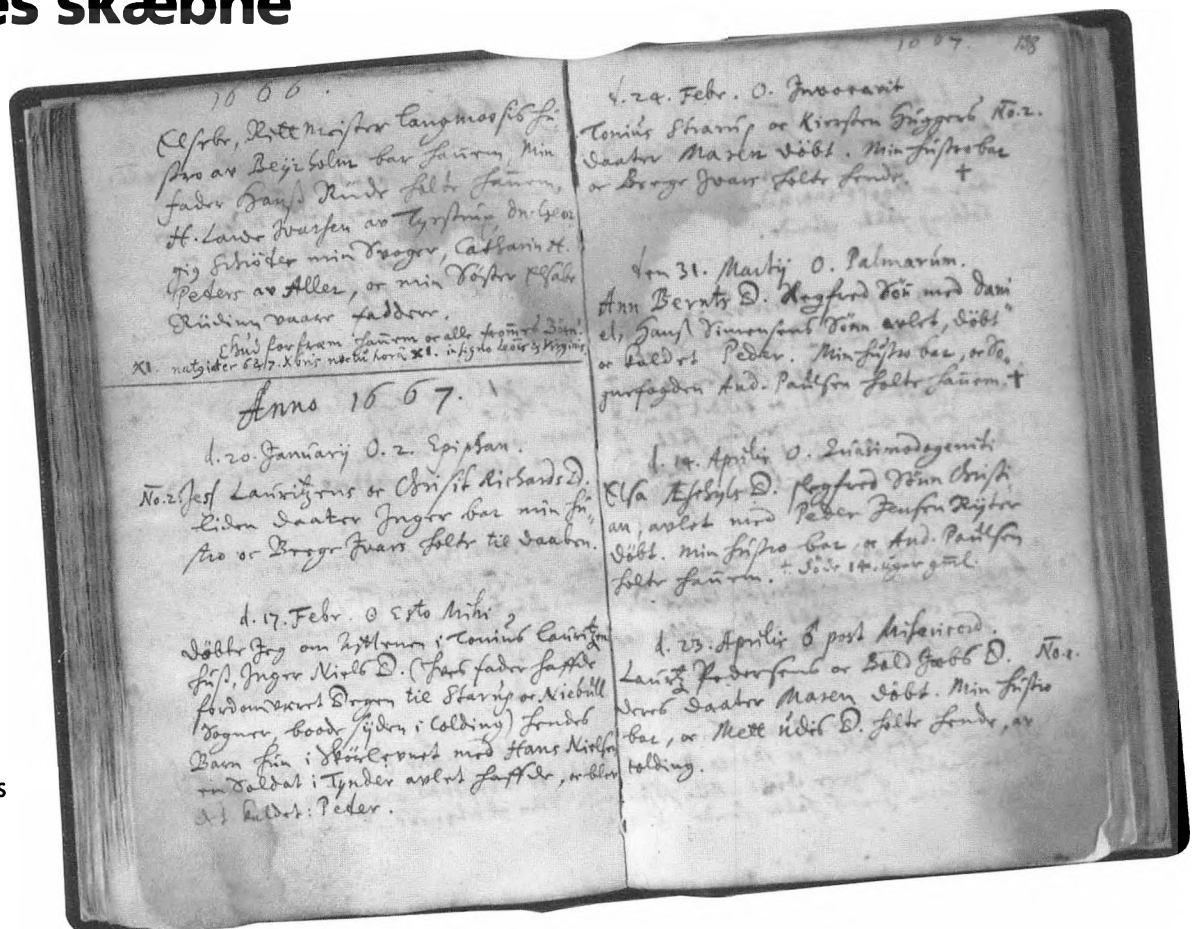 es skæbne
1666.
Elsebe, Rittmeister Langmoosis hu-
stro av Beyrholm bar hannem, Min
fader Hanß Rude holte hannem,
H. Lawe Ivarsen av Tyrstrup, dn. Geor
gig Schröter min Svoger, Catharin H.
Peters av Aller, oc min Søster Elsabe
Rüdinn vaare faddere.
Gud forfram hannem oc alle frommes Børn.
XI.
Anno 1667.
d. 20. Januarij O. 2. Epiphan.
No. 2. Jess Lauritzens oc Chrisit Richards D.
liden daater Inger bar min hu-
stro oc Berge Ivars holte til daaben.
d. 17. Febr. O Esto Mihi
døbte Jeg om Afftenen i Tonius Lauritzen
huß, Inger Niels D. (hves fader haffde
fordom veret Degen til Starup oc Niebüll
Sogner, boode syden i Colding) hendes
Barn hun i Skørlevnet med Hans Nielsen
en Soldat i Tynder avlet haffde, oc blev
det kaldet: Peter.
1667. 138
d. 24. Febr. O. Invocavit
Tonius Starup oc Kiersten Huggers No. 2.
daater Maren døbt. Min hustro bar
oc Berge Ivars holte hende. †
den 31. Martij O. Palmarum.
Ann Bernts D. Slegfred Søn med Dani
el, Hanß Simensens Sønn avlet, døbt
oc kaldet Peder. Min hustro bar, oc So-
gnefogden And. Paulsen holte hannem. †
d. 14. Aprilis O. Quasimodogeniti
Elsa Eschyls D. slegfred Sønn Christi
an, avlet med Peder Jensen Ryter
døbt. Min hustro bar, oc And. Paulsen
holte hannem. † døde 14. uger gml.
d. 23. Aprilis post Misericord.
Lauritz Pedersens oc Bold Jacobs D. No. 2.
deres daater Maren døbt. Min hustro
bar, oc Mett Udis D. holte hende, av
Colding.
s